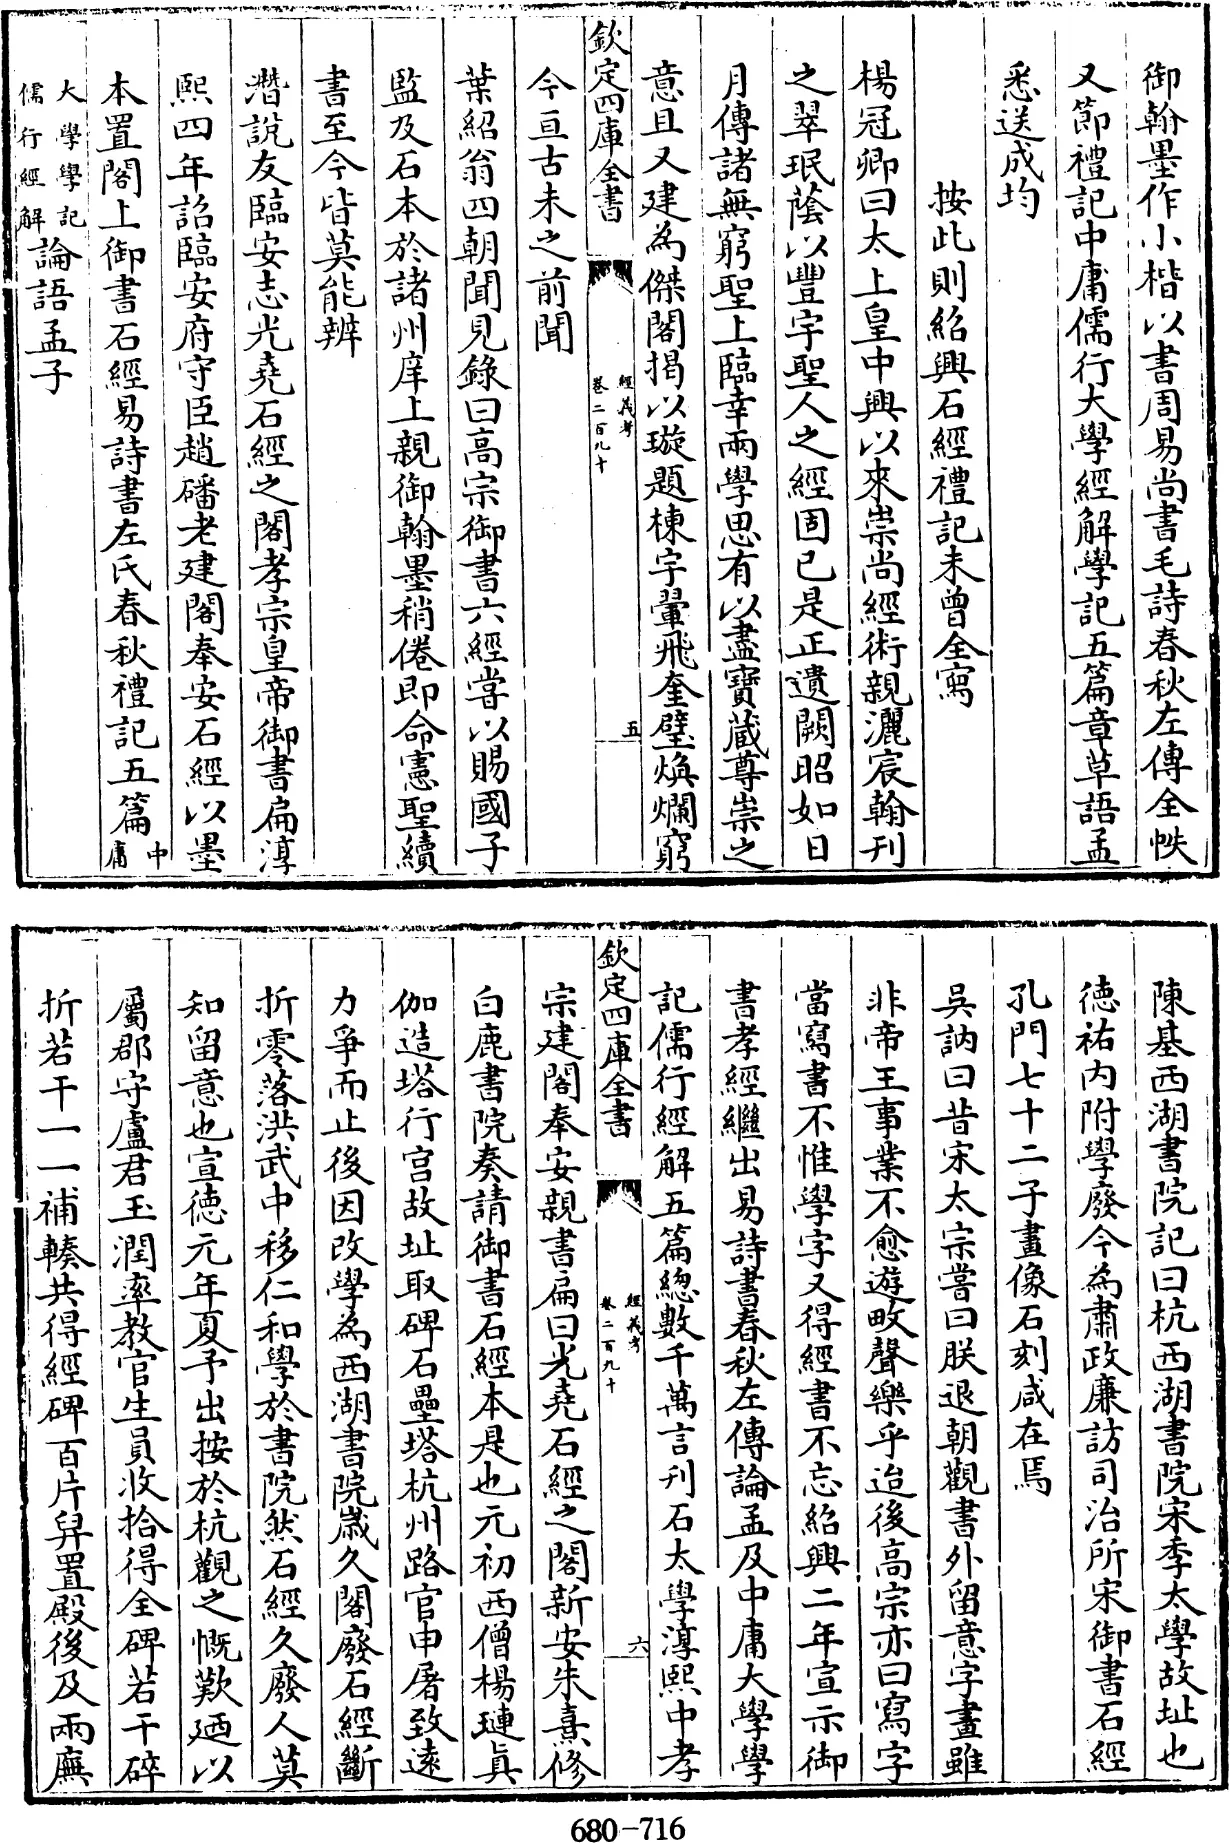 御翰墨作小楷以書周易尚書毛詩春秋左傳全帙
又節禮記中庸儒行大學經解學記五篇章草語孟
悉送成均
按此則紹興石經禮記未曾全寫
楊冠卿曰太上皇中興以來崇尚經術親灑宸翰刊
之翠珉蔭以豐宇聖人之經固已是正遺闕昭如日
月傳諸無窮聖上臨幸兩學思有以盡寶藏尊崇之
意且又建為傑閣揭以璇題棟宇翬飛奎璧煥爛窮
欽定四庫全書
經義考
卷二百九十
五
今亘古未之前聞
葉紹翁四朝聞見錄曰高宗御書六經嘗以賜國子
監及石本於諸州庠上親御翰墨稍倦即命憲聖續
書至今皆莫能辨
潛說友臨安志光堯石經之閣孝宗皇帝御書扁淳
熙四年詔臨安府守臣趙磻老建閣奉安石經以墨
本置閣上御書石經易詩書左氏春秋禮記五篇中庸
大學學記儒行經解論語孟子
陳基西湖書院記曰杭西湖書院宋季太學故址也
徳祐内附學廢今為肅政廉訪司治所宋御書石經
孔門七十二子畫像石刻咸在焉
吳訥曰昔宋太宗嘗曰朕退朝觀書外留意字畫雖
非帝王事業不愈遊畋聲樂乎迨後高宗亦曰寫字
當寫書不惟學字又得經書不忘紹興二年宣示御
書孝經繼出易詩書春秋左傳論孟及中庸大學學
記儒行經解五篇總數千萬言刊石太學淳熙中孝
欽定四庫全書
經義考
卷二百九十
六
宗建閣奉安親書扁曰光堯石經之閣新安朱熹修
白鹿書院奏請御書石經本是也元初西僧楊璉真
伽造塔行宫故址取碑石壘塔杭州路官申屠致遠
力爭而止後因改學為西湖書院嵗久閣廢石經斷
折零落洪武中移仁和學於書院然石經久廢人莫
知留意也宣徳元年夏予出按於杭觀之慨歎廼以
屬郡守盧君玉潤率教官生員收拾得全碑若干碎
折若干一一補輳共得經碑百片舁置殿後及兩廡
680-716